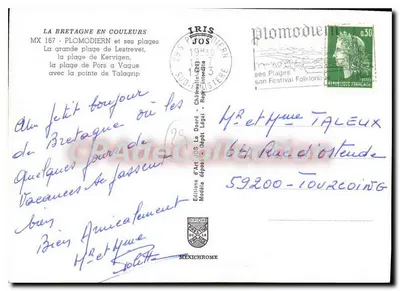 LA BRETAGNE EN COULEURS
MX 167 - PLOMODIERN et ses plages
La grande plage de Lestrevet,
la plage de Kervigen,
la plage de Pors a Vague
avec la pointe de Talagrip
IRIS
JOS
Plomodiern
ses Plages
son Festival Folklorique
0,30
REPUBLIQUE FRANCAISE
Un petit bonjour
de Bretagne où les
quelques jours de
vacances se passent
bien
Bien Amicalement
Mr et Mme
Mr et Mme TALEUX
Rue d'ostende
59200 - TOURCOING
Editions d'Art JOS Le Doaré - Châteaulin
Modèle déposé (Dépôt légal) - Reproduction
MEXICHROME